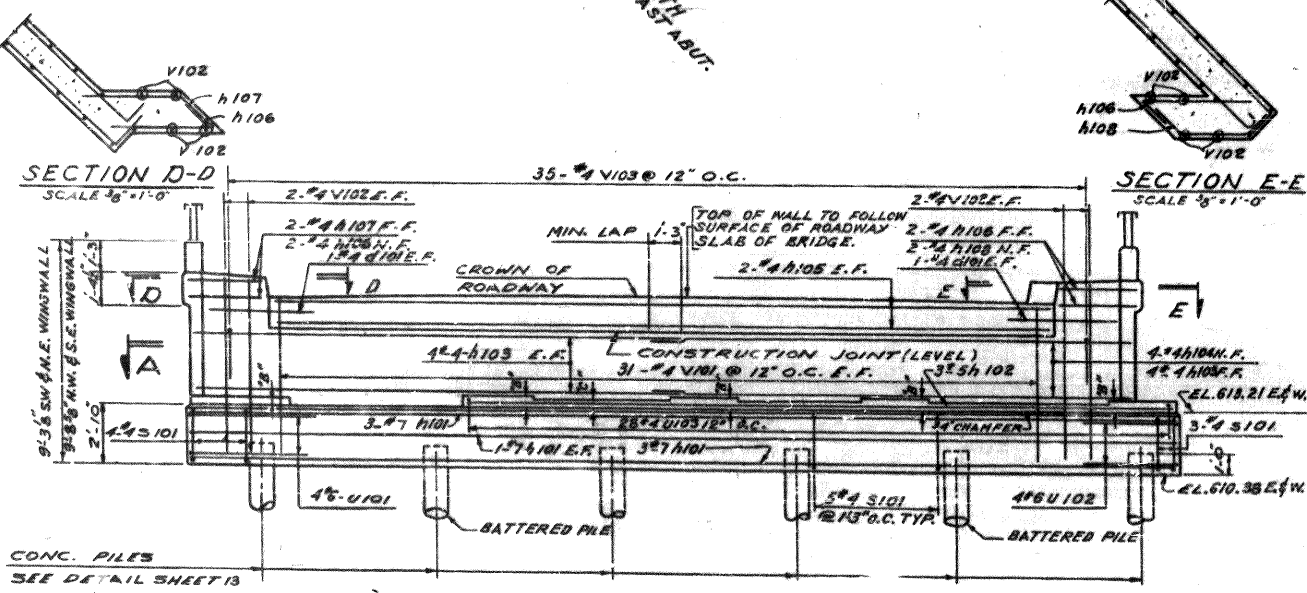 AST ABUT.
V102
h107
h106
V102
SECTION D-D
SCALE 3/8"=1'-0"
V102
h106
h108
V102
SECTION E-E
SCALE 3/8"=1'-0"
35-#4 V103 @ 12" O.C.
2-#4 V102 E.F.
2-#4 h107 F.F.
2-#4 h106 N.F.
1-#4 d101 E.F.
MIN. LAP 1'-3"
TOP OF WALL TO FOLLOW
SURFACE OF ROADWAY
SLAB OF BRIDGE.
2-#4 V102 E.F.
2-#4 h106 F.F.
2-#4 h108 N.F.
1-#4 d101 E.F.
CROWN OF
ROADWAY
2-#4 h105 E.F.
D
D
E
E
A
1'-3"
9'-3⅝" S.W. & N.E. WINGWALL
9'-8⅝" N.W. & S.E. WINGWALL
2'-10"
4#4-h103 E.F.
CONSTRUCTION JOINT (LEVEL)
31-#4 V101, @ 12" O.C. E.F.
3#5h102
4-#4h104N.F.
EL.613.21 E.&W.
4-#4 S101
3-#7 h101
28#4 U103 12" O.C.
¾" CHAMFER
3-#4 S101
1-#7 h101 E.F.
3#7h101
1'-0"
EL.610.38 E.&W.
4#6-U101
5#4 S101
@ 1'-3" O.C. TYP.
4#6 U102
BATTERED PILE
BATTERED PILE
CONC. PILES
SEE DETAIL SHEET 13